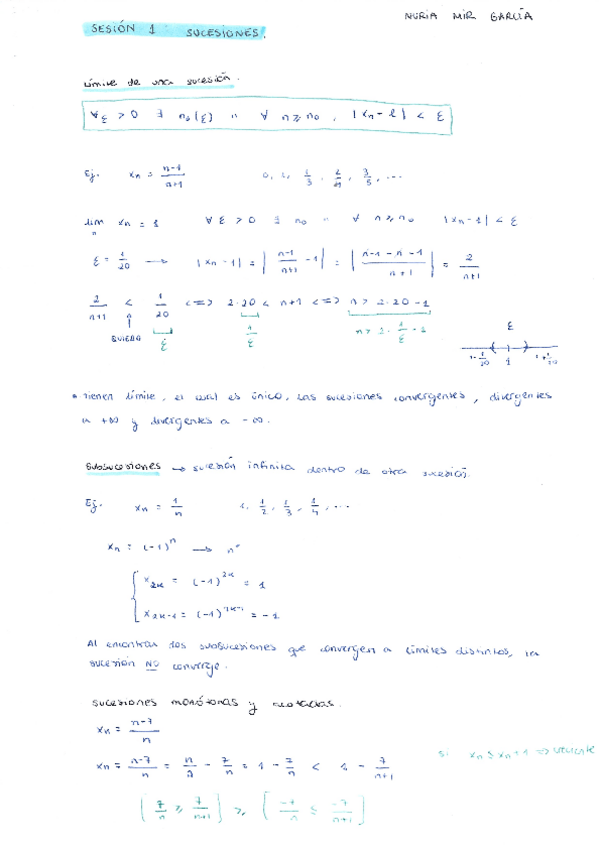 NURIA MIR GARCÍA
SESIÓN 1 SUCESIONES.
Límite de una sucesión.
∀ε > 0 ∃ n₀(ε) " ∀ n ≥ n₀, |xn - l| < ε
Ej. xn = n-1/n+1 0, 1, 1/3, 2/4, 3/5, ...
lim n xn = 1 ∀ε > 0 ∃ n₀ " ∀ n ≥ n₀ |xn - 1| < ε
ε = 1/20 → |xn - 1| = |n-1/n+1 - 1| = |n-1-n-1/n+1| = 2/n+1
2/n+1 < 1/20 <=> 2·20 < n+1 <=> n > 2·20-1
QUIERO ε 1/ε n > 2·1/ε-1
ε
1-1/20 1 1+1/20
• Tienen límite, el cual es único, las sucesiones convergentes, divergentes
a +∞ y divergentes a -∞.
Subsucesiones → sucesión infinita dentro de otra sucesión.
Ej. xn = 1/n 1, 1/2, 1/3, 1/4, ...
xn = (-1)ⁿ →
x2k = (-1)^2k = 1
x2k-1 = (-1)^2k-1 = -1
Al encontrar dos subsucesiones que convergen a límites distintos, la
sucesión NO converge.
Sucesiones monótonas y acotadas.
xn = n-7/n
xn = n-7/n = n/n - 7/n = 1 - 7/n < 1 - 7/n+1
si xn ≤ xn+1 ⇒
[7/n ≥ 7/n+1] [-7/n ≤ -7/n+1]